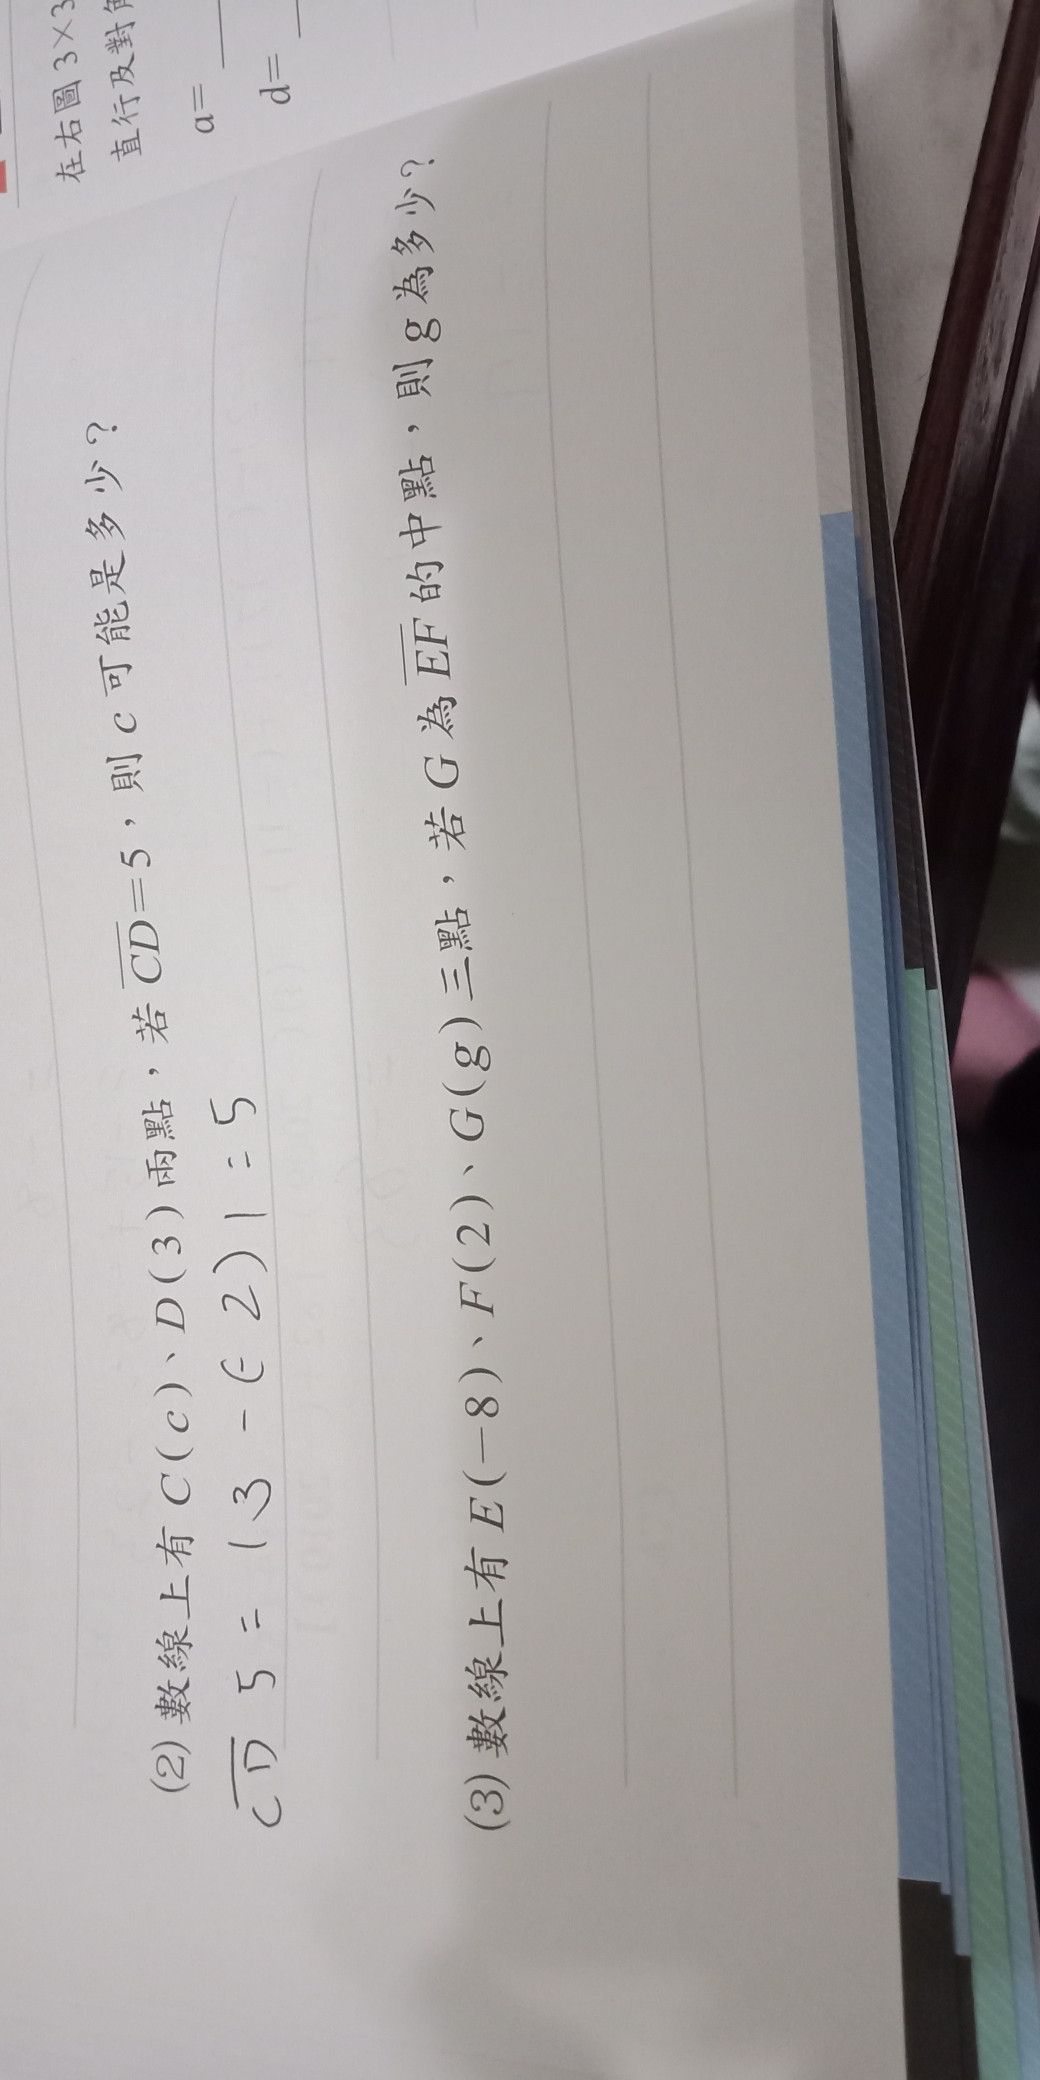 (2) 數線上有 C(c)、D(3)兩點，若 CD=5，則 c 可能是多少？
CD 5 = |3 - (-2)| = 5
(3) 數線上有 E(-8)、F(2)、G(g)三點，若 G 為 EF 的中點，則 g 為多少？
在右圖3×3
直行及對角
a=
d=